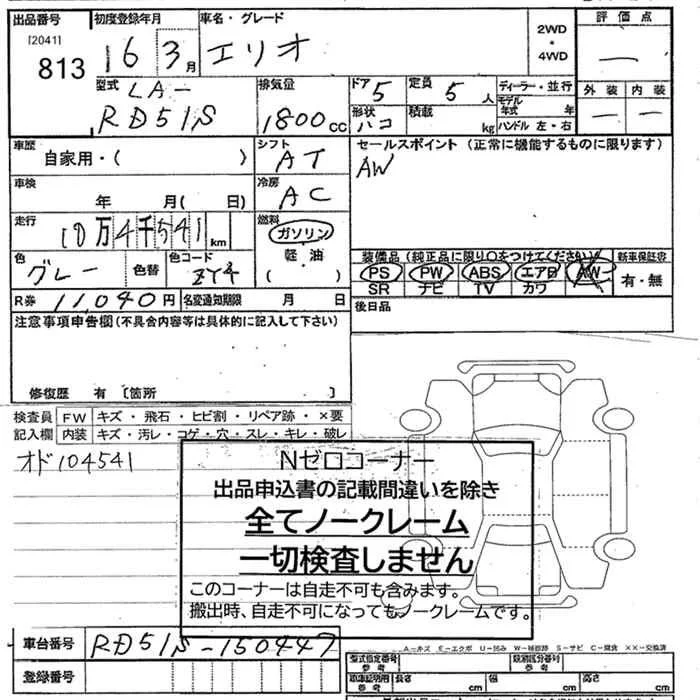 出品番号 初度登録年月 車名・グレード 評価点
[2041]
813 16 3月 エリオ 2WD・4WD —
型式 排気量 ドア 定員 ディーラー・並行 外装 内装
LA- 5 5人 モデル年式 年 — —
RD51S 1800cc 形状 ハコ 積載 kg ハンドル 左・右
車歴 シフト セールスポイント (正常に機能するものに限ります)
自家用・( ) AT AW
車検 年 月( 日) 冷房 AC
走行 10万4千541km 燃料 ガソリン
軽油
( )
色 グレー 色替 色コード ZY4 装備品 (純正品に限り○をつけてください) 新車保証書
PS PW ABS エアB AW 有・無
SR ナビ TV カワ
R券 11,040円 名変通知期限 月 日 後日品
注意事項申告欄(不具合内容等は具体的に記入して下さい)
修復歴 有 [箇所 ]
検査員 FW キズ・飛石・ヒビ割・リペア跡・×要
記入欄 内装 キズ・汚レ・コゲ・穴・スレ・キレ・破レ
オド104541
Nゼロコーナー
出品申込書の記載間違いを除き
全てノークレーム
一切検査しません
このコーナーは自走不可も含みます。
搬出時、自走不可になってもノークレームです。
車台番号 RD51S-150447
A-キズ E-エクボ U-凹み W-補修跡 S-サビ C-腐食 XX-交換済
登録番号
型式指定番号 参考 類別区分番号 参考
車庫証明用 参考 長さ cm 幅 cm 高さ cm